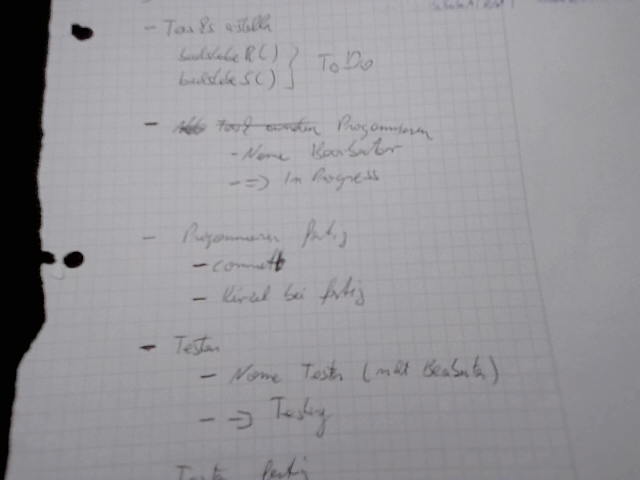 - Tasks erstellen
buchstabeR() } ToDo
buchstabeS()
- Programmieren
- Name Bearbeiter
- => In Progress
- Programmieren fertig
- commit
- Kürzel bei fertig
- Testen
- Name Tester (nicht Bearbeiter)
- => Testing
Testen fertig